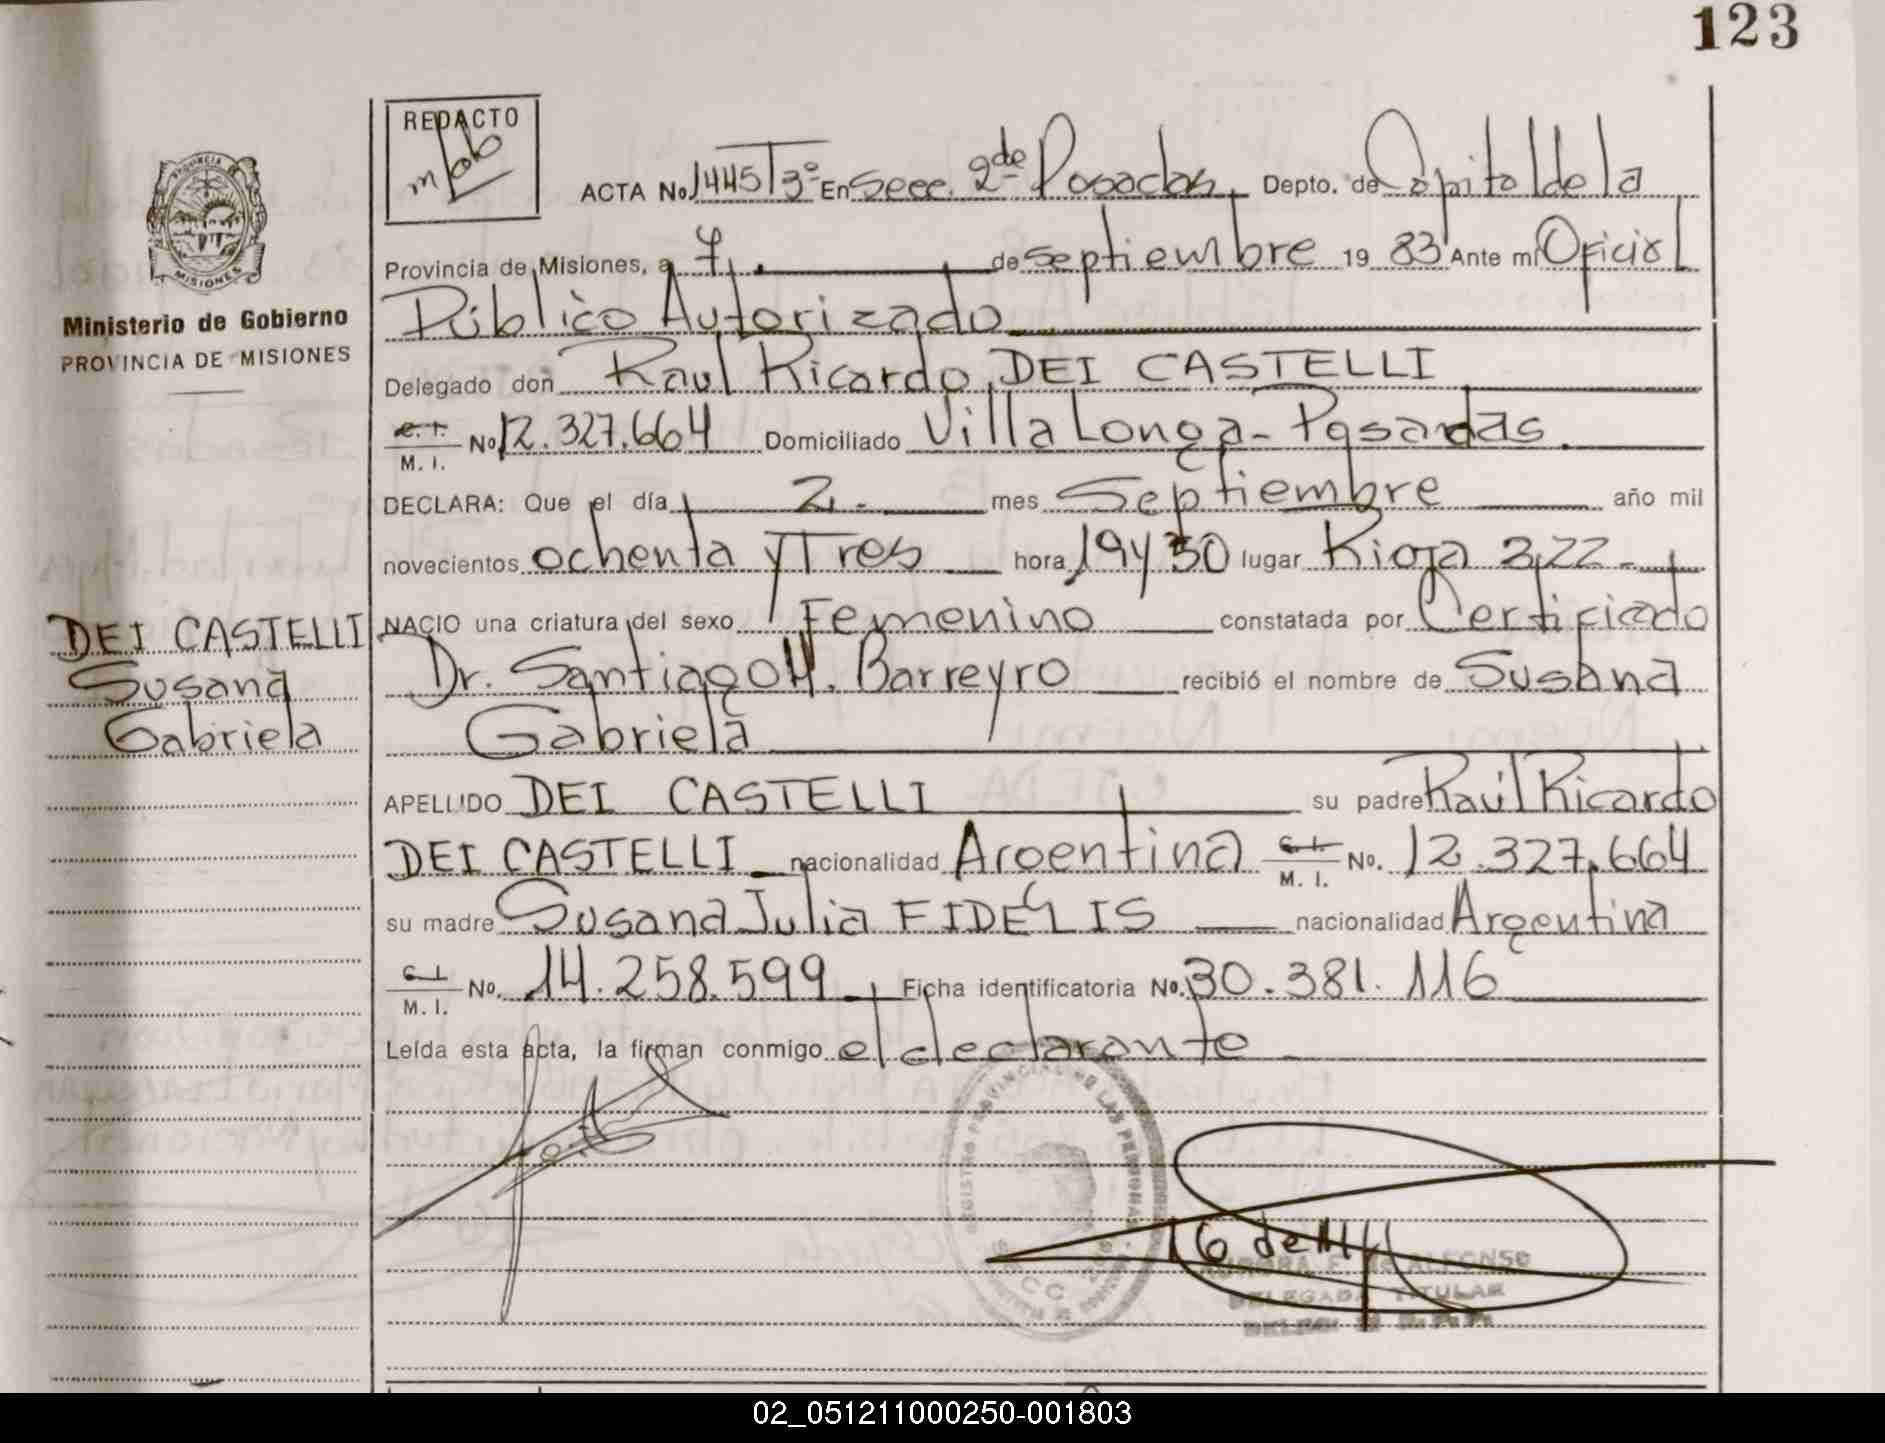 123
REDACTO
mbob
PROVINCIA
MISIONES
Ministerio de Gobierno
PROVINCIA DE MISIONES
ACTA No. 1445 T 3º En Secc. 2da de Posadas, Depto. de Capital de la
Provincia de Misiones, a 7 de septiembre 19 83 Ante mi Oficial
Público Autorizado
Delegado don Raul Ricardo DEI CASTELLI
C. I. M. I. No. 12.327.664 Domiciliado Villa Longa - Posadas.
DECLARA: Que el día 2 - mes Septiembre año mil
novecientos ochenta y Tres hora 19 y 30 lugar Rioja 322 -
NACIO una criatura del sexo Femenino constatada por Certificado
Dr. Santiago H. Barreyro recibió el nombre de Susana
Gabriela
APELLIDO DEI CASTELLI su padre Raúl Ricardo
DEI CASTELLI nacionalidad Argentina C. I. M. I. No. 12.327.664
su madre Susana Julia FIDELIS nacionalidad Argentina
C. I. M. I. No. 14.258.599 Ficha identificatoria No. 30.381.116
Leída esta acta, la firman conmigo el declarante -
DEI CASTELLI
Susana
Gabriela
REGISTRO PROVINCIAL DE LAS PERSONAS
AURORA F. de ALFONSO
DELEGADA TITULAR
02_051211000250-001803